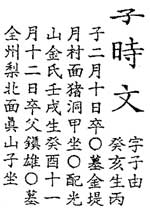 子時文
字子由
癸亥生丙
子二月十日卒○墓金堤
月村面猪洞甲坐○配光
山金氏壬戌生癸酉十一
月十二日卒父鎭雄○墓
全州梨北面眞山子坐